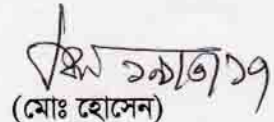 ১৯/৩/১৭
(মোঃ হোসেন)